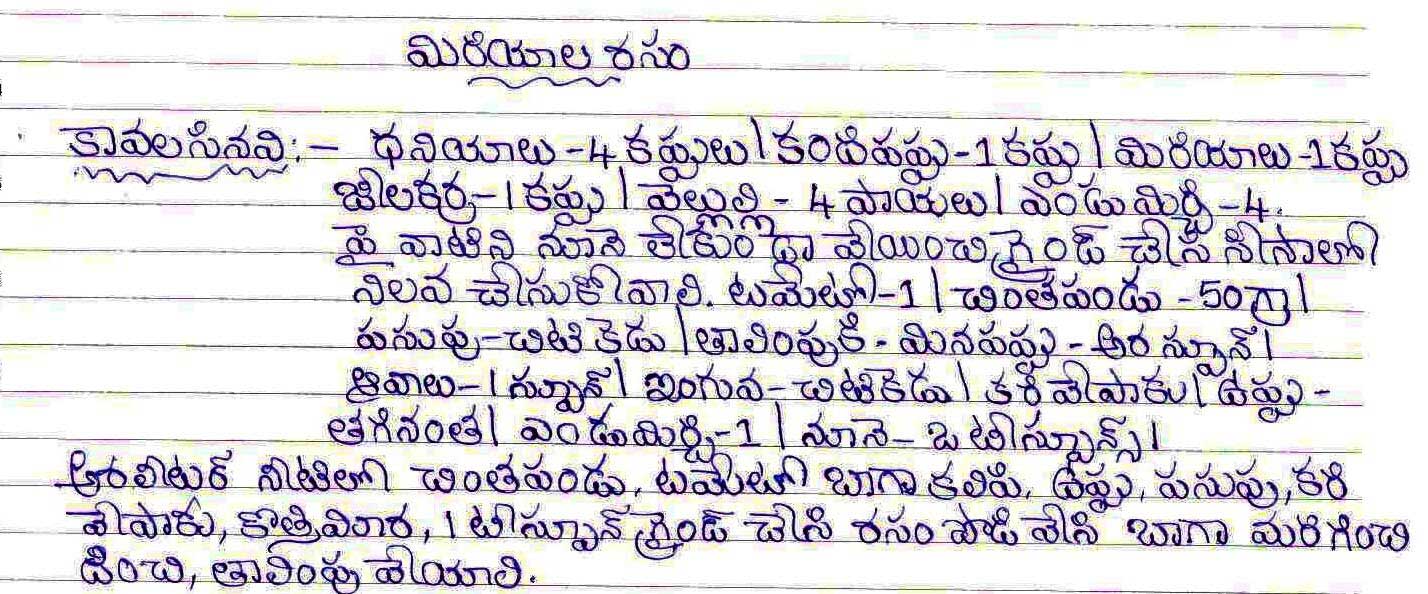 మిరియాల రసం
కావలసినవి:- ధనియాలు -4 కప్పులు | కందిపప్పు -1 కప్పు | మిరియాలు -1 కప్పు
జీలకర్ర -1 కప్పు | వెల్లుల్లి - 4 పాయలు | ఎండు మిర్చి -4.
పై వాటిని నూనె లేకుండా వేయించి, గ్రైండ్ చేసి సీసాలో
నిలవ చేసుకోవాలి. టమేటో -1 | చింతపండు -50గ్రా |
పసుపు - చిటికెడు | తాలింపుకి - మినపప్పు - అర స్పూన్ |
ఆవాలు -1 స్పూన్ | ఇంగువ - చిటికెడు | కరివేపాకు | ఉప్పు -
తగినంత | ఎండుమిర్చి -1 | నూనె - 2 టీస్పూన్స్ |
అరలీటర్ నీటిలో చింతపండు, టమేటో బాగా కలిపి, ఉప్పు, పసుపు, కరి
వేపాకు, కొత్తిమీర, 1 టీస్పూన్ గ్రైండ్ చేసి రసం పొడి వేసి బాగా మరిగించి
దించి, తాలింపు వేయాలి.